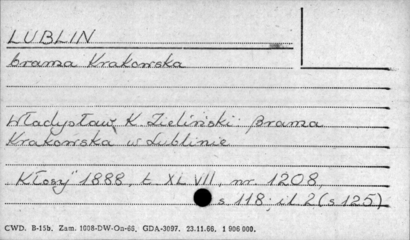 LUBLIN
brama Krakowska
Władysław K. Zieliński: Brama
Krakowska w Lublinie
"Kłosy" 1888, t. XLVII, nr. 1208,
s 118; il. 2 (s 125)
CWD. B-15b, Zam. 1008-DW-On-66, GDA-3097. 23.11.66. 1 906 000.